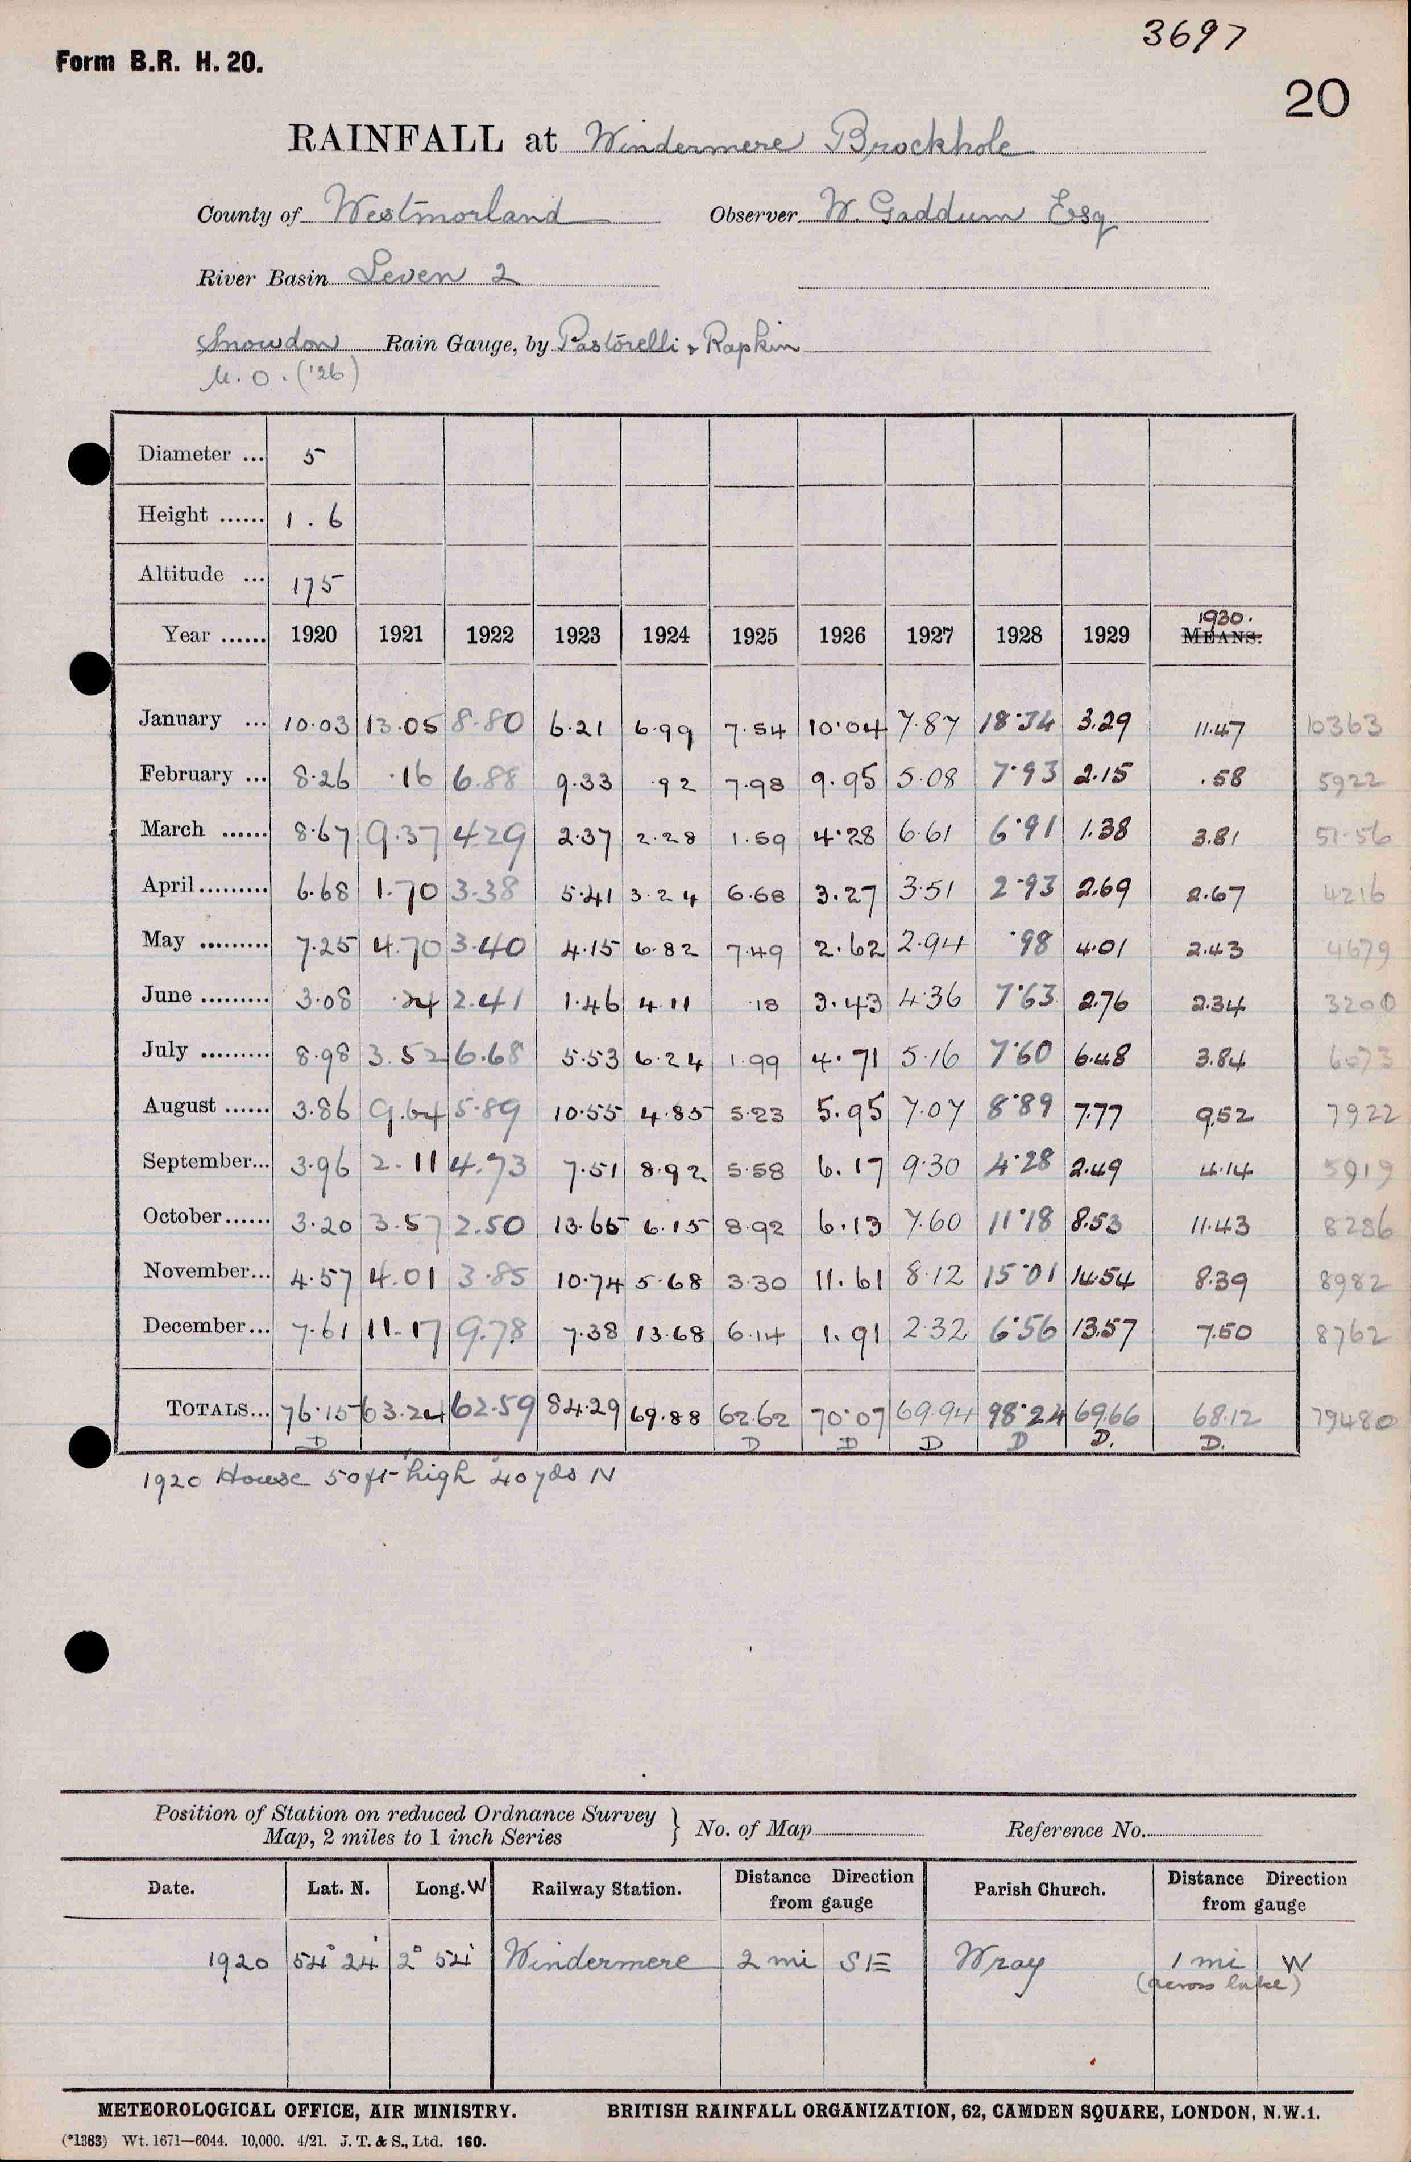 3697
Form B.R. H. 20.
20
RAINFALL at Windermere Brockhole
County of Westmorland Observer W. Gaddum Esq
River Basin Leven 2
Snowdon Rain Gauge, by Pastorelli & Rapkin
M.O. ('26)
Diameter ... 5
Height ...... 1.6
Altitude ... 175
1930.
Year ...... 1920 1921 1922 1923 1924 1925 1926 1927 1928 1929 MEANS.
January ... 10.03 13.05 8.80 6.21 6.99 7.54 10.04 7.87 18.34 3.29 11.47 10363
February ... 8.26 .16 6.88 9.33 .92 7.98 9.95 5.08 7.93 2.15 .58 5922
March ...... 8.67 9.37 4.29 2.37 2.28 1.59 4.28 6.61 6.91 1.38 3.81 51.56
April ......... 6.68 1.70 3.38 5.41 3.24 6.68 3.27 3.51 2.93 2.69 2.67 4216
May ......... 7.25 4.70 3.40 4.15 6.82 7.49 2.62 2.94 .98 4.01 2.43 4679
June ......... 3.08 .24 2.41 1.46 4.11 .18 3.43 4.36 7.63 2.76 2.34 3200
July ......... 8.98 3.52 6.68 5.53 6.24 1.99 4.71 5.16 7.60 6.48 3.84 6073
August ...... 3.86 9.64 5.89 10.55 4.85 5.23 5.95 7.07 8.89 7.77 9.52 7922
September... 3.96 2.11 4.73 7.51 8.92 5.58 6.17 9.30 4.28 2.49 4.14 5919
October...... 3.20 3.57 2.50 13.65 6.15 8.92 6.13 7.60 11.18 8.53 11.43 8286
November... 4.57 4.01 3.85 10.74 5.68 3.30 11.61 8.12 15.01 14.54 8.39 8982
December... 7.61 11.17 9.78 7.38 13.68 6.14 1.91 2.32 6.56 13.57 7.50 8762
TOTALS... 76.15 63.24 62.59 84.29 69.88 62.62 70.07 69.94 98.24 69.66 68.12 79480
D D D D D D. D.
1920 House 50ft high 40 yds N
Position of Station on reduced Ordnance Survey
Map, 2 miles to 1 inch Series } No. of Map Reference No.
Date. Lat. N. Long. W Railway Station. Distance Direction from gauge Parish Church. Distance Direction from gauge
1920 54° 24' 2° 54' Windermere 2 mi SE Wray 1 mi W
(across lake)
METEOROLOGICAL OFFICE, AIR MINISTRY. BRITISH RAINFALL ORGANIZATION, 62, CAMDEN SQUARE, LONDON, N.W.1.
(*1383) Wt. 1671—6044. 10,000. 4/21. J. T. & S., Ltd. 160.